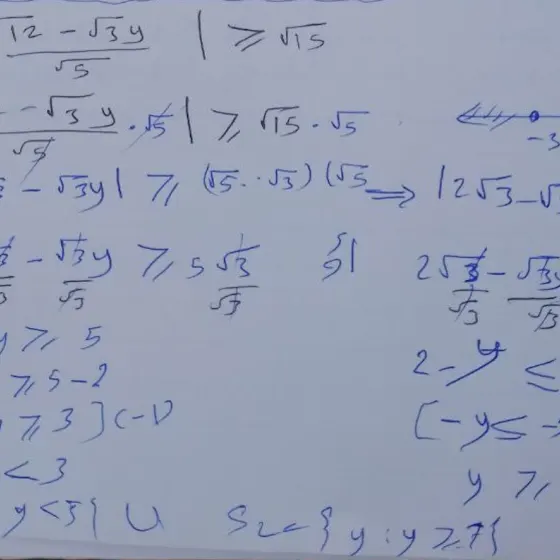 √12 - √3y / √5 | ≥ √15
- √3 y / √5 · √5 | ≥ √15 · √5
-3
- √3y | ≥ (√5 · √3) (√5 ⟹ | 2√3 - √
√3 / √3 - √3y / √3 ≥ 5 √3 / √3 او 2√3 / √3 - √3y / √3
y ≥ 5
2 - y ≤
≥ 5 - 2
≥ 3 ] (-1)
[ -y ≤ -
< 3
y ≥
y < 3 { ∪ S₂ = { y : y ≥ 7 {